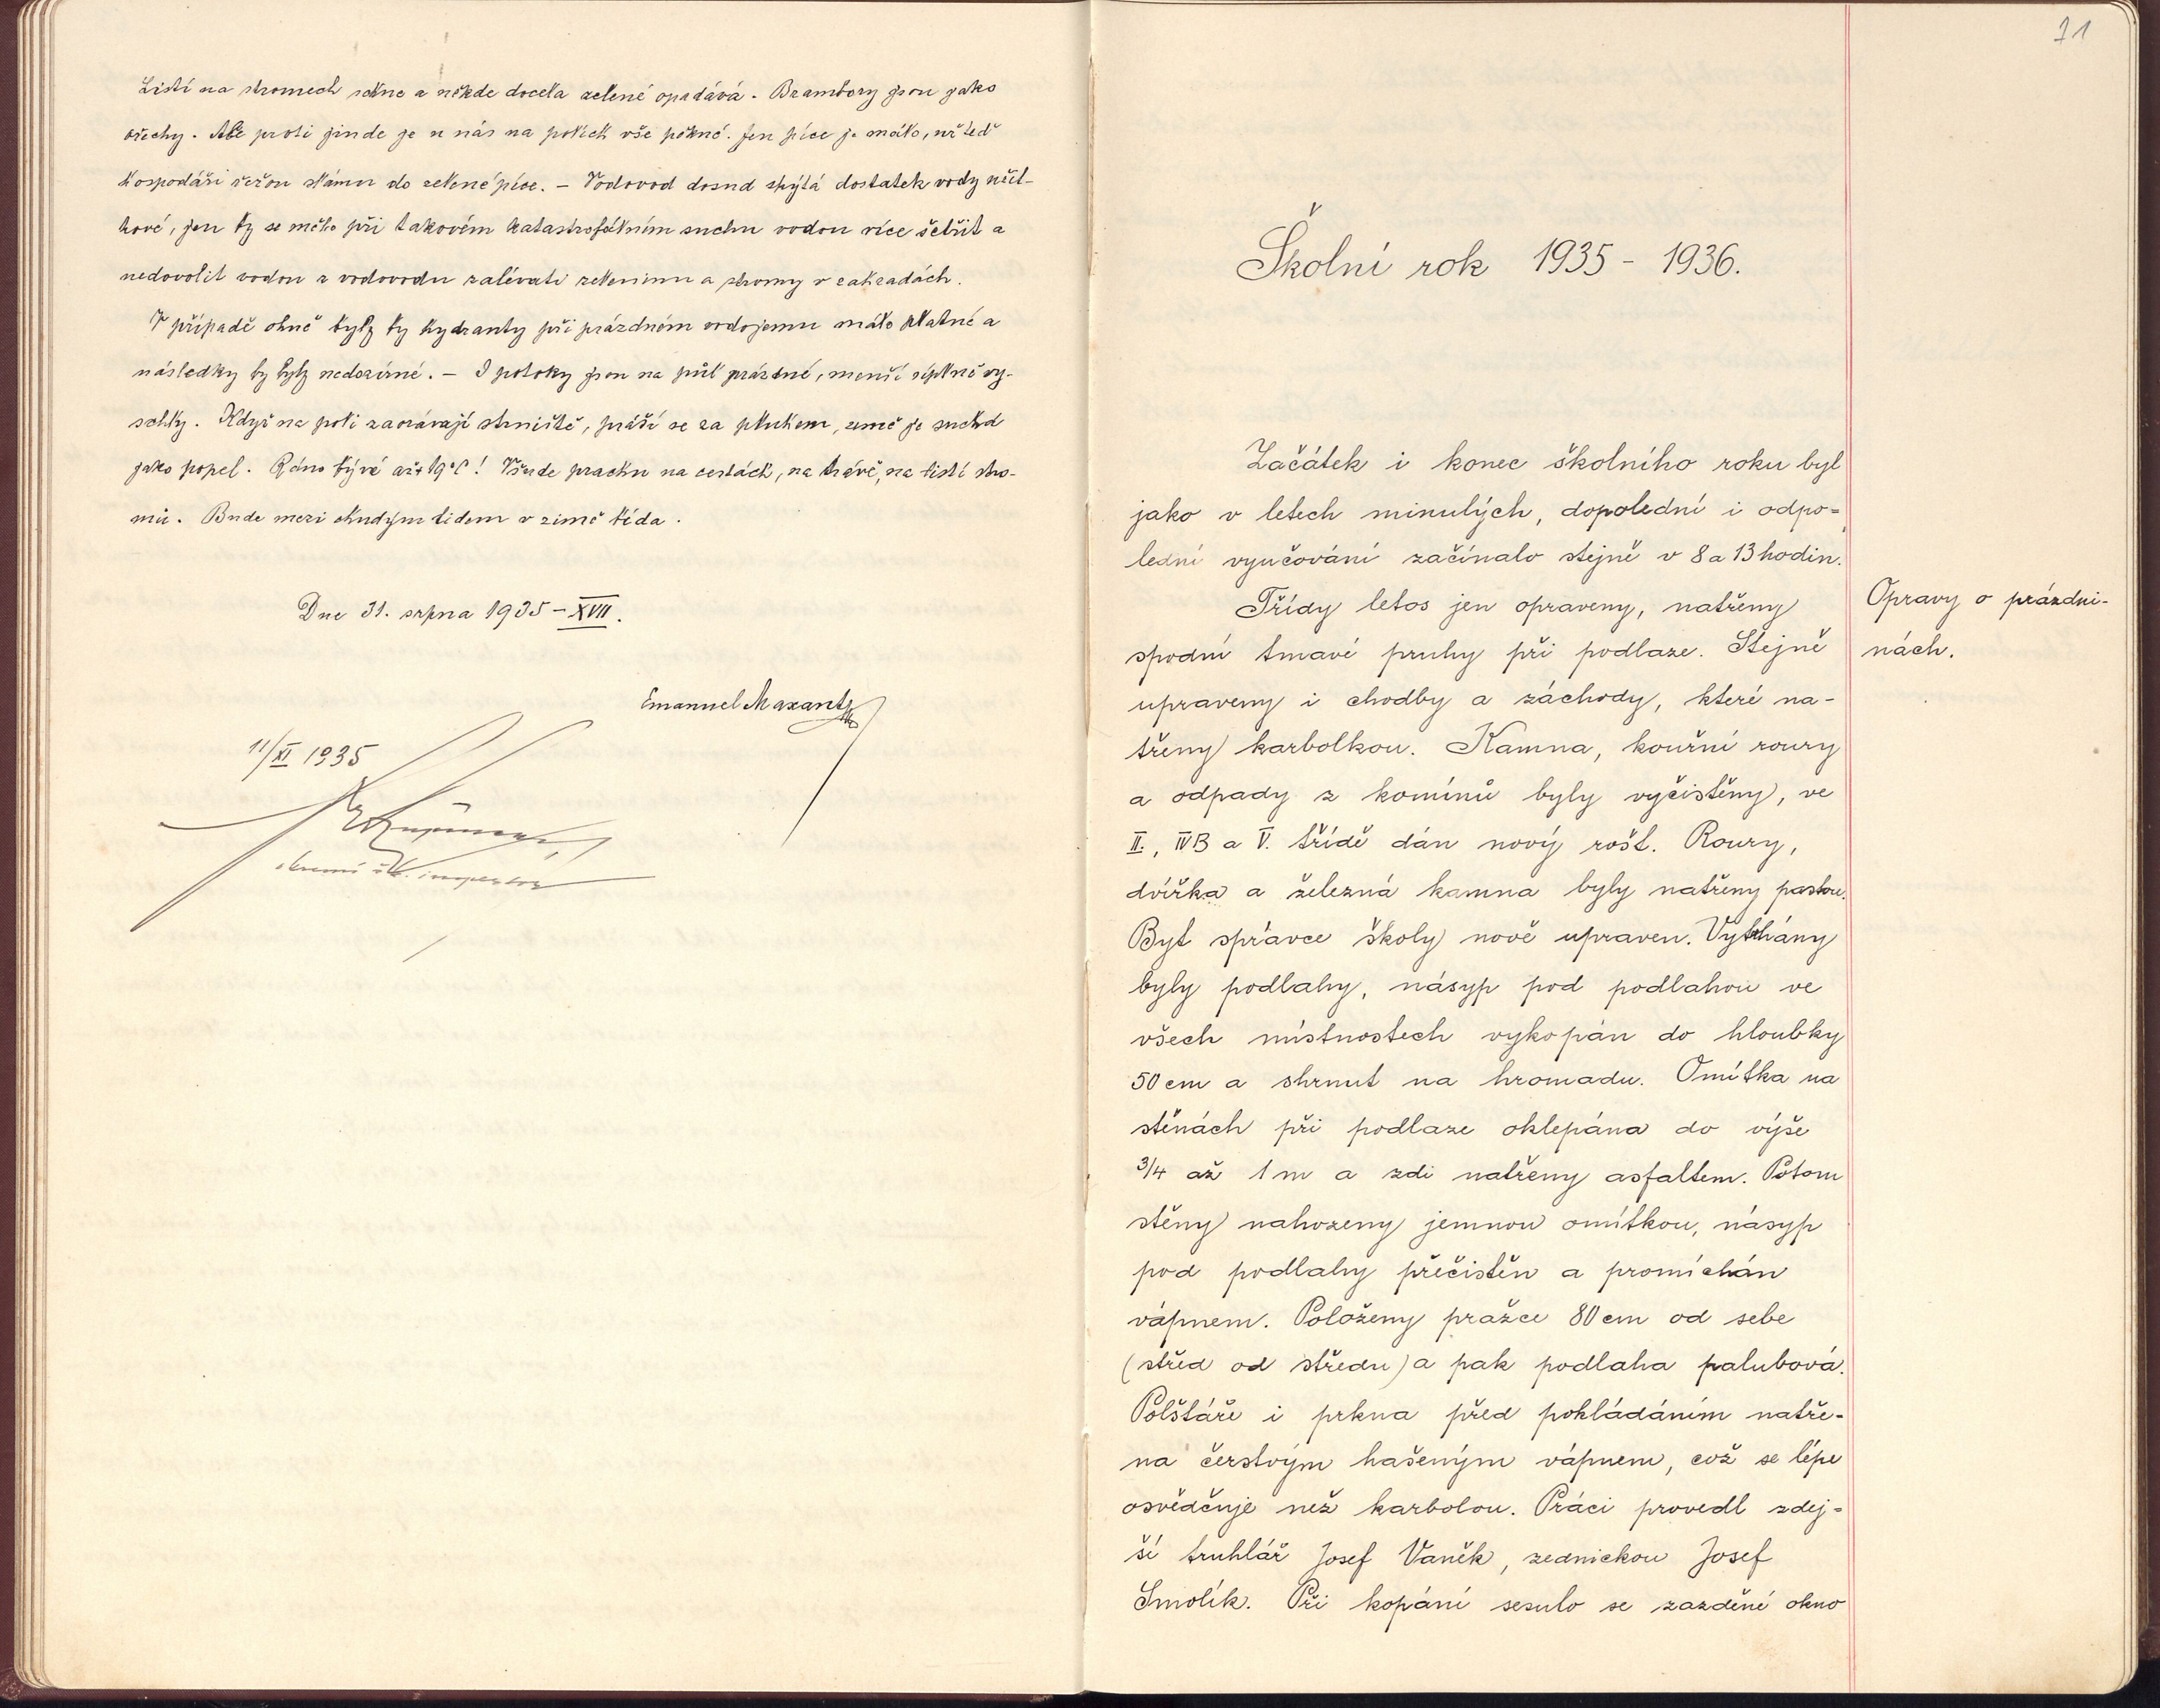 Listí na stromech schne a někde docela zelené opadává. Brambory jsou jako
ořechy. Ale proti jinde je u nás na polích vše pěkné. Jen píce je málo, už teď
hospodáři řežou slámu do zelené píce. – Vodovod dosud skýtá dostatek vody užit-
kové, jen by se mělo při takovém katastrofálním suchu vodou více šetřit a
nedovolit vodou z vodovodu zalévati zeleninu a stromy v zahradách.
V případě ohně byly by hydranty při prázdném vodojemu málo platné a
následky by byly nedozírné. – I potoky jsou na půl prázdné, menší úplně vy-
schly. Když na poli zaorávají strniště, práší se za pluhem, země je suchá
jako popel. Ráno bývá až + 19°C! Všude prachu na cestách, na trávě, na listí stro-
mů. Bude mezi chudým lidem v zimě bída.
Dne 31. srpna 1935 – XVII.
Emanuel Maxant
11/XI 1935
šk. inspektor
71
Školní rok 1935 - 1936.
Začátek i konec školního roku byl
jako v letech minulých, dopolední i odpo=
lední vyučování začínalo stejně v 8 a 13 hodin.
Třídy letos jen opraveny, natřeny
spodní tmavé pruhy při podlaze. Stejně
upraveny i chodby a záchody, které na-
třeny karbolkou. Kamna, kouřní roury
a odpady z komínů byly vyčistěny, ve
II., IVB a V. třídě dán nový rošt. Roury,
dvířka a železná kamna byly natřeny pastou.
Byt správce školy nově upraven. Vytrhány
byly podlahy, násyp pod podlahou ve
všech místnostech vykopán do hloubky
50 cm a shrnut na hromadu. Omítka na
stěnách při podlaze oklepána do výše
3/4 až 1 m a zdi natřeny asfaltem. Potom
stěny nahozeny jemnou omítkou, násyp
pod podlahy přečistěn a promíchán
vápnem. Položeny pražce 80 cm od sebe
(střed od středu) a pak podlaha palubová.
Polštáře i prkna před pokládáním natře-
na čerstvým hašeným vápnem, což se lépe
osvědčuje než karbolou. Práci provedl zdej=
ší truhlář Josef Vaněk, zednickou Josef
Smolík. Při kopání sesulo se zazděné okno
Opravy o prázdni-
nách.